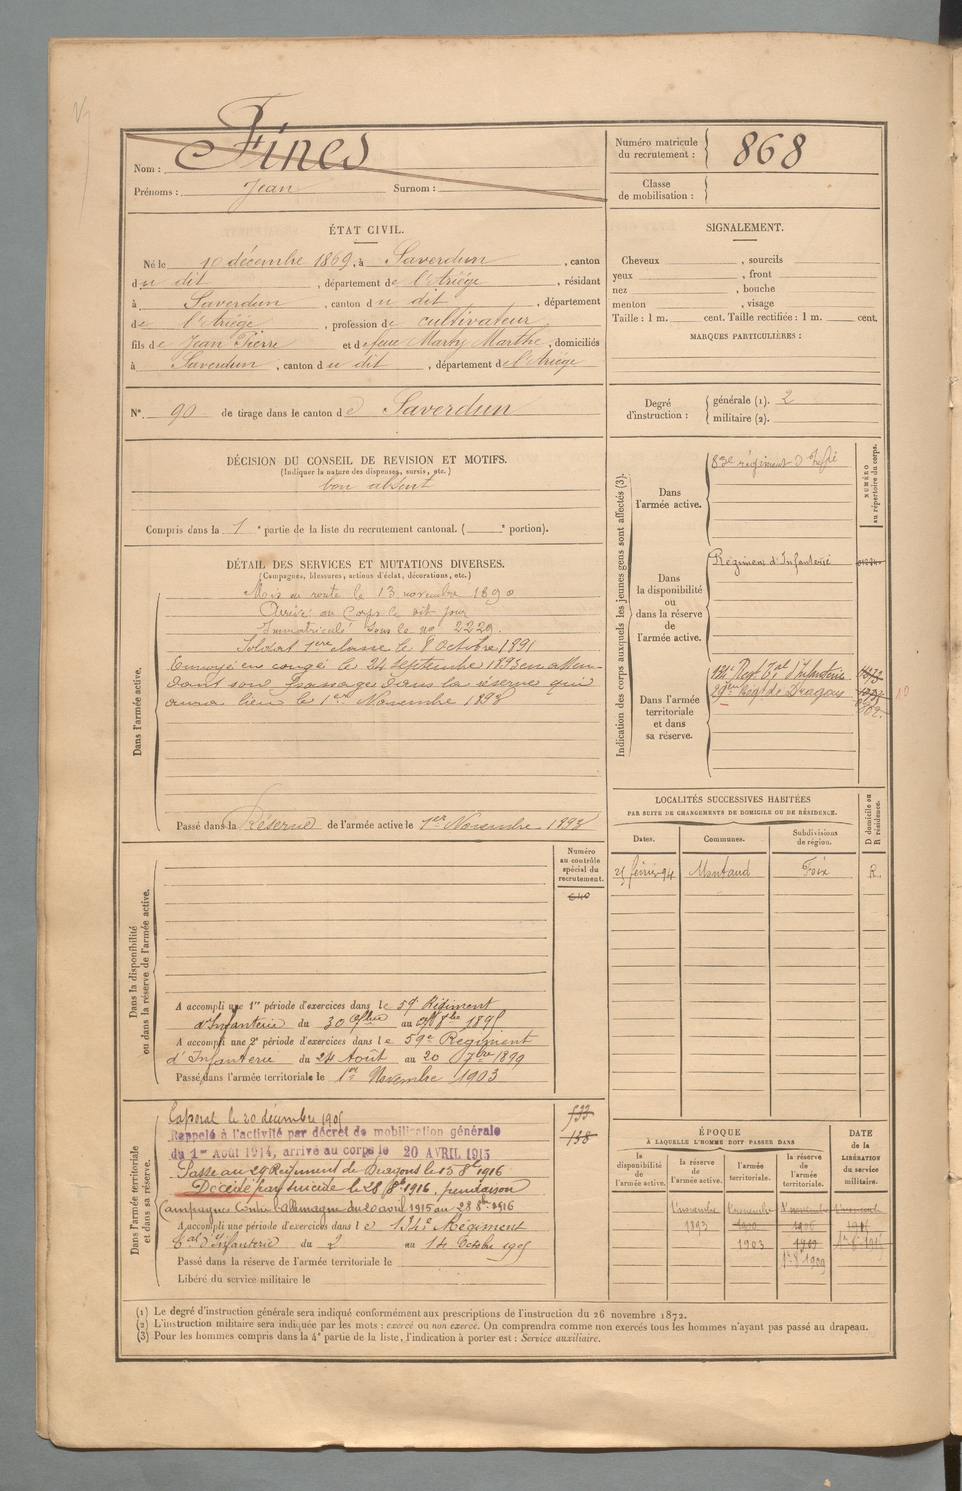 Nom : Fines
Prénoms : Jean Surnom :
Numéro matricule du recrutement : 868
Classe de mobilisation :
ÉTAT CIVIL.
Né le 10 décembre 1869, à Saverdun, canton
du dit, département de l'Ariége, résidant
à Saverdun, canton du dit, département
de l'Ariége, profession de cultivateur
fils de Jean Pierre et de feue Marty Marthe, domiciliés
à Saverdun, canton du dit, département de l'Ariége
N° 90 de tirage dans le canton de Saverdun
SIGNALEMENT.
Cheveux , sourcils
yeux , front
nez , bouche
menton , visage
Taille : 1 m. cent. Taille rectifiée : 1 m. cent.
MARQUES PARTICULIÈRES :
Degré d'instruction : générale (1). 2
militaire (2).
DÉCISION DU CONSEIL DE REVISION ET MOTIFS.
(Indiquer la nature des dispenses, sursis, etc.)
bon absent
Compris dans la 1e partie de la liste du recrutement cantonal. ( e portion).
DÉTAIL DES SERVICES ET MUTATIONS DIVERSES.
(Campagnes, blessures, actions d'éclat, décorations, etc.)
Dans l'armée active.
Mis en route le 13 novembre 1890
Arrivé au Corps le dit jour
Immatriculé sous le no 2229.
Soldat 1ère classe le 8 Octobre 1891
Envoyé en congé le 24 Septembre 1893 en atten-
dant son passage dans la réserve qui
aura lieu le 1er Novembre 1893
Passé dans la Réserve de l'armée active le 1er Novembre 1893
Indication des corps auxquels les jeunes gens sont affectés (3).
NUMÉRO au répertoire du corps.
Dans l'armée active.
83e régiment d'Infie
Dans la disponibilité ou dans la réserve de l'armée active.
Régiment d'Infanterie
Dans l'armée territoriale et dans sa réserve.
134e Regt Tal d'Infanterie
29eme Regt de Dragons
LOCALITÉS SUCCESSIVES HABITÉES
PAR SUITE DE CHANGEMENTS DE DOMICILE OU DE RÉSIDENCE.
Dates. Communes. Subdivisions de région. D domicile ou R résidence.
25 février 94 Montaud Foix R.
Dans la disponibilité ou dans la réserve de l'armée active.
Numéro au contrôle spécial du recrutement.
640
A accompli une 1re période d'exercices dans le 59e Régiment
d'Infanterie du 30 au 1895
A accompli une 2e période d'exercices dans le 59e Régiment
d'Infanterie du 24 Août au 20 7bre 1899
Passé dans l'armée territoriale le 1er Novembre 1903
Dans l'armée territoriale et dans sa réserve.
533
138
Caporal le 20 décembre 1905
Rappelé à l'activité par décret de mobilisation générale
du 1er Août 1914, arrivé au corps le 20 AVRIL 1915
Passé au 29 Régiment de Dragons le 1916
Décédé par suicide le 28 8bre 1916, pendaison
Campagne contre l'allemagne du 20 avril 1915 au 28 8bre 1916
A accompli une période d'exercices dans le 134e Régiment
Tal d'Infanterie du 2 au 14 Octobre 1905
Passé dans la réserve de l'armée territoriale le
Libéré du service militaire le
ÉPOQUE
À LAQUELLE L'HOMME DOIT PASSER DANS
DATE de la LIBÉRATION du service militaire.
la disponibilité de l'armée active. la réserve de l'armée active. l'armée territoriale. la réserve de l'armée territoriale.
1er novembre 1er novembre 1er novembre 1er novembre
1893 1900 1906 1915
1903 1909
1909
(1) Le degré d'instruction générale sera indiqué conformément aux prescriptions de l'instruction du 26 novembre 1872.
(2) L'instruction militaire sera indiquée par les mots : exercé ou non exercé. On comprendra comme non exercés tous les hommes n'ayant pas passé au drapeau.
(3) Pour les hommes compris dans la 4e partie de la liste, l'indication à porter est : Service auxiliaire.